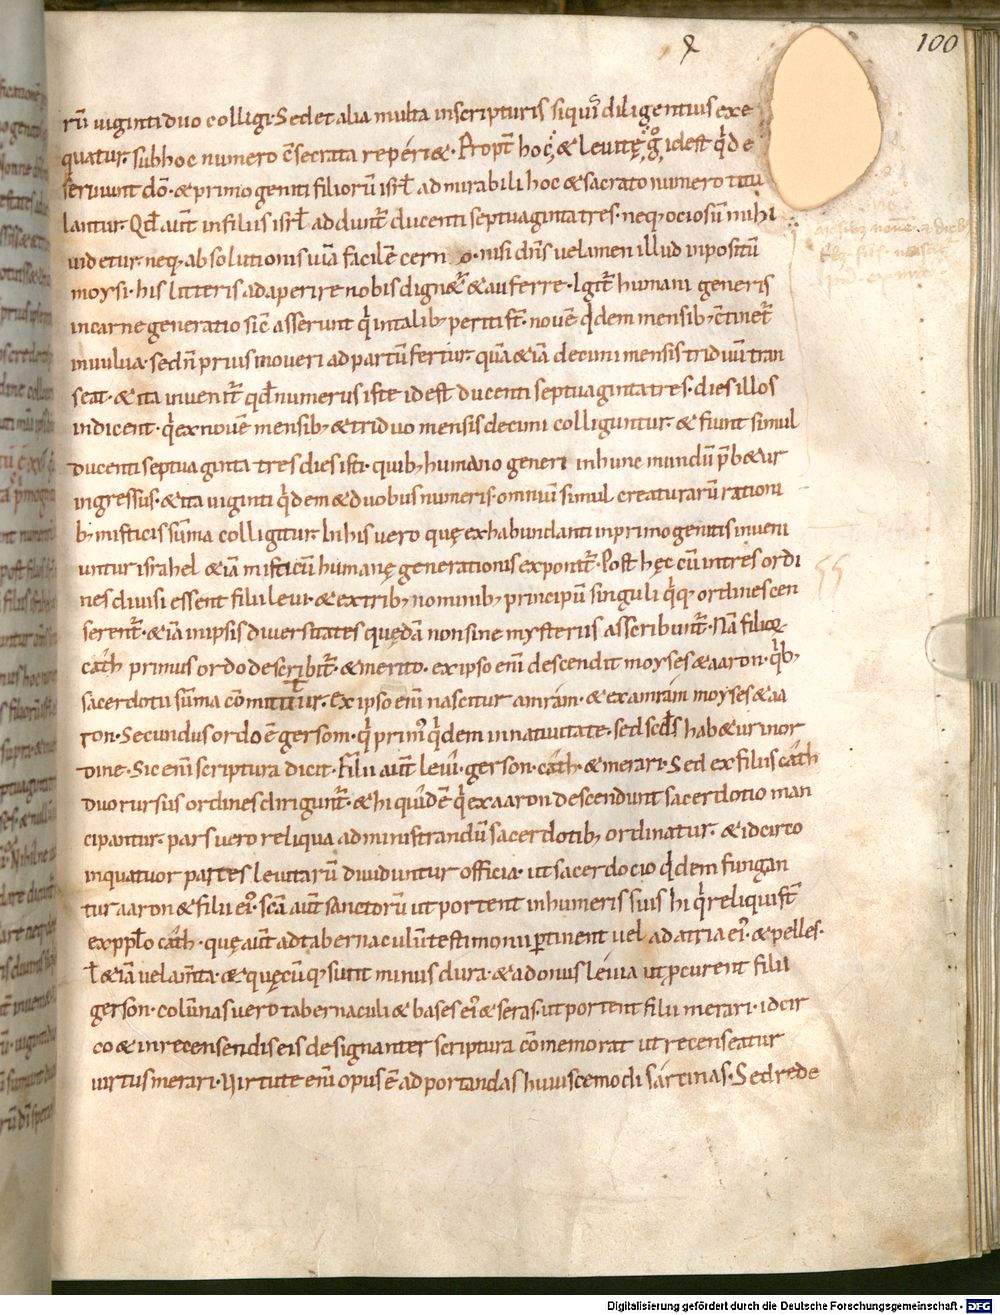 100
rū uiginti duo colligi. Sed et alia multa in scripturis siquis diligentius exe
quatur. sub hoc numero c̄secrata reperi&. Propt̄ hoc & leuitę idest qd e
seruiunt dō. & primogeniti filiorū isrl admirabili hoc & sacrato numero titu
lantur. Qd aut̄ in filiis isrl addunt̄ ducenti septuaginta tres. neq; ociosū mihi
uidetur. neq; absolutionis uiā facilē cerno. nisi dn̄s uelamen illud inpositū
moysi. his litteris adaperire nobis dign&ur & auferre. Igit̄ humani generis
in carne generatio sic̄ asserunt qi in talib; periti st̄. nouē qdem mensib; c̄tinet̄
in uulua. sed n̄ prius moueri ad partū fertur. quā &iā decimi mensis triduū tran
seat. & ita inuenit̄ qd numerus iste idest ducenti septuaginta tres. dies illos
indicent. qi ex nouē mensib; & triduo mensis decimi colliguntur. & fiunt simul
ducenti septuaginta tres dies isti. quib; humano generi in hunc mundū p̄b&ur
ingressus. & ita uiginti qdem & duobus numeris. omniū simul creaturarū rationi
b; misticis sūma colligitur. In his uero quę ex habundanti in primogenitis inueni
untur israhel &iā misticū humanę generationis exponit̄. Post hęc cū in tres ordi
nes diuisi essent filii leui. & ex trib; nominib; principū singuli qq; ordines cen
serent̄. &iā in ipsis diuersitates quędā non sine mysteriis asscribunt̄. Nā filioꝝ
cáth primus ordo describit̄ & merito. ex ipso eni descendit moyses & aaron. qb;
sacerdotii sūma cōmittitur. Ex ipso eni nascitur amrám. & ex amrám moyses & aa
ron. Secundus ordo ē gersom. qi prim' qdem in natiuitate. sed scds hab&ur in or
dine. Sic eni scriptura dicit. Filii aut̄ leui. gerson. cáth. & merari. Sed ex filiis cáth
duo rursus ordines dirigunt̄. & hi quidē qi ex aaron descendunt sacerdotio man
cipantur. pars uero reliqua administrandū sacerdotib; ordinatur. & idcirco
in quatuor partes leuitarū diuiduntur officia. ut sacerdocio qdem fungan
tur aaron & filii ei'. scā aut̄ sanctorū ut portent in humeris suis hi qi reliqui st̄
ex ppło cáth. quę aut̄ ad tabernaculū testimonii ꝑtinent uel ad atria ei'. & pelles.
ł &iā uelam̄ta. & quęcūq; sunt minus dura. & ad onus leuia ut ꝓcurent filii
gerson. colūnas uero tabernaculi & bases ei' & seras. ut portent filii merari. idcir
co & in recensendis eis designanter scriptura cōmemorat ut recenseatur
uirtus merari. Virtute eni opus ē ad portandas huiuscemodi sárcinas. Sed rede
Digitalisierung gefördert durch die Deutsche Forschungsgemeinschaft - DFG